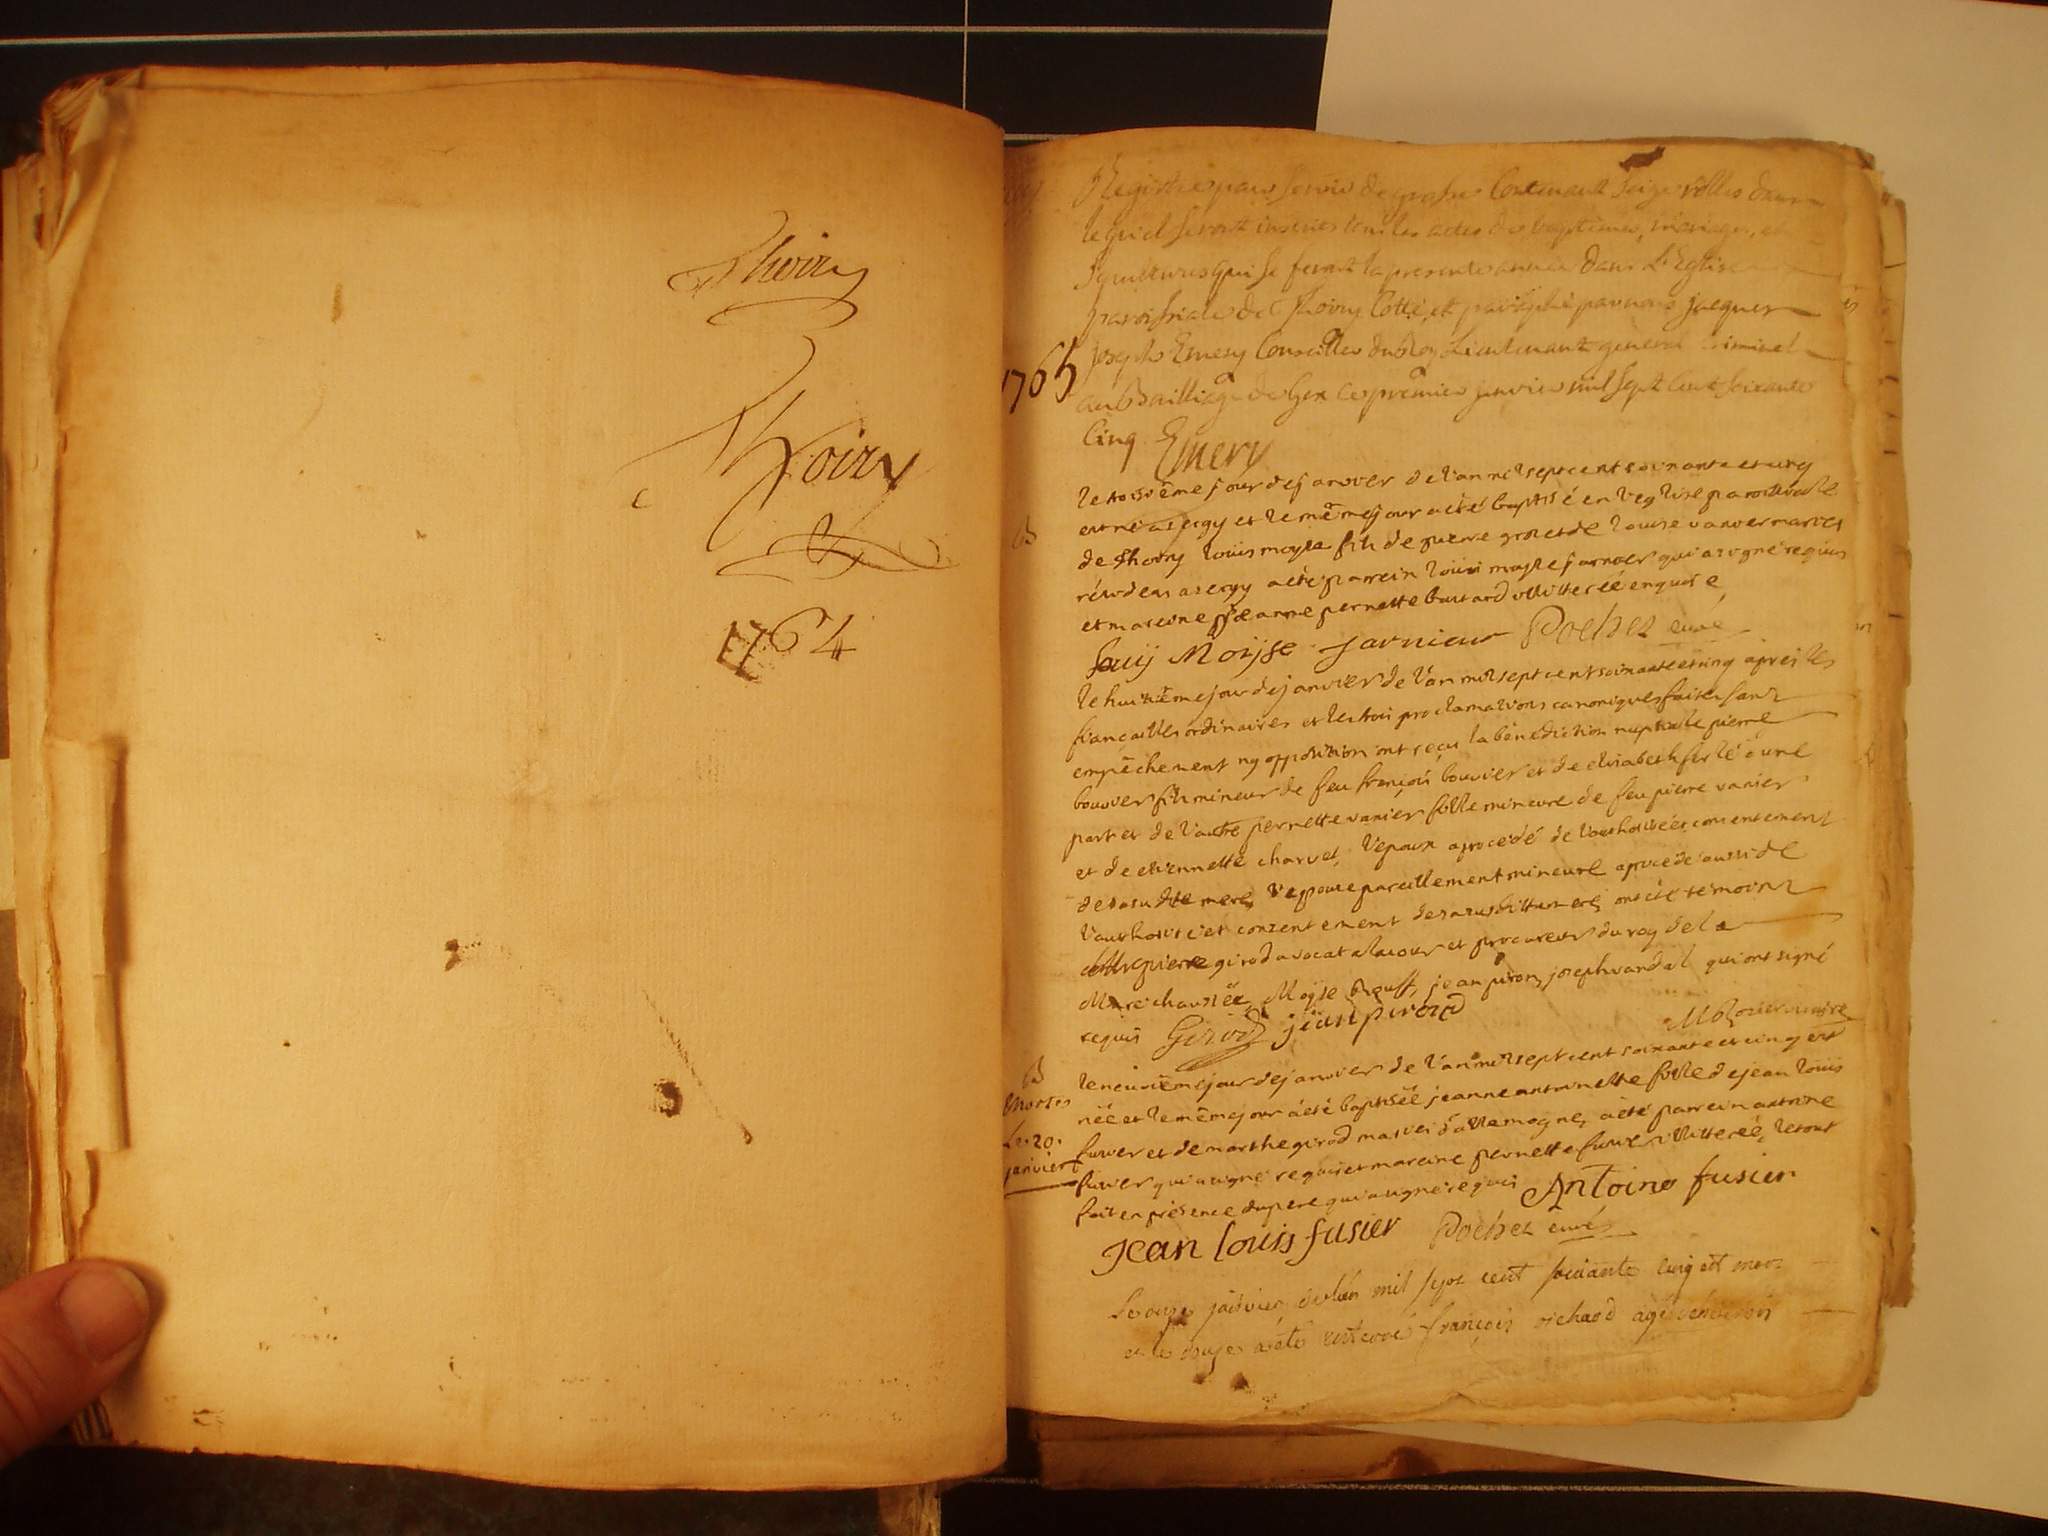 Thoiry
Thoiry
1764
Registre pour servir de grosse Contenant seize rolles dans
lequel seront inserés tous les actes de baptêmes, mariages, et
sepultures qui se feront la presente année dans L'Eglise
paroissiale de Thoiry Cotté, et paraphé par nous jacques
1765
joseph Emery Conseiller du Roy Lieutenant general Criminel
au Bailliage de Gex ce premier janvier mil sept Cent soixante
Cinq Emery
B
le troisième jour de janvier de l'an mil sept cent soixante et cinq
est né a sergy et le même jour a été baptisé en l'eglise paroissiale
de Thoiry loüis moyse fils de pierre gros et de louise mariés
résidens a sergy a été parrein loüis moyse jarnier qui a signé requis
et mareine jeanne pernette illitterée enquise
Louij Moijse jarnieur Pochet curé
le huitième jour de janvier de l'an mil sept cent soixante et cinq après les
fiançailles ordinaires et les trois proclamations canoniques faites sans
empêchement ny opposition ont reçus la bénediction nuptiale pierre
bouvier fils mineur de feu françois bouvier et de elisabeth d'une
part et de l'autre pernette vanier fille mineure de feu pierre vanier
et de etiennette charvet, l'epoux a procedé de l'authorité et consentement
de sa susditte mere, l'epouse pareillement mineure a procedé aussi de
l'authorité et consentement de sa susditte mere, ont été témoins
pierre girod avocat a la cour et procureur du roy de la
Marechaussée, Moyse jean piron, joseph vandal qui ont signé
requis Girod jean piron
B
le neuvième jour de janvier de l'an mil sept cent soixante et cinq est
née et le même jour a été baptisée jeanne antoinette fille de jean loüis
fusier et de marthe girod mariés d'allemogne, a été parrein antoine
fusier qui a signé requis et mareine pernette illitterée, le tout
fait en présence du pere qui a signé requis Antoine fusier
morte
le 20
janvier
Jean louis fusier Pochet curé
Le onze janvier de l'an mil sept cent soixante cinq est mort
et le douze a été enterré françois richard agé d'environ